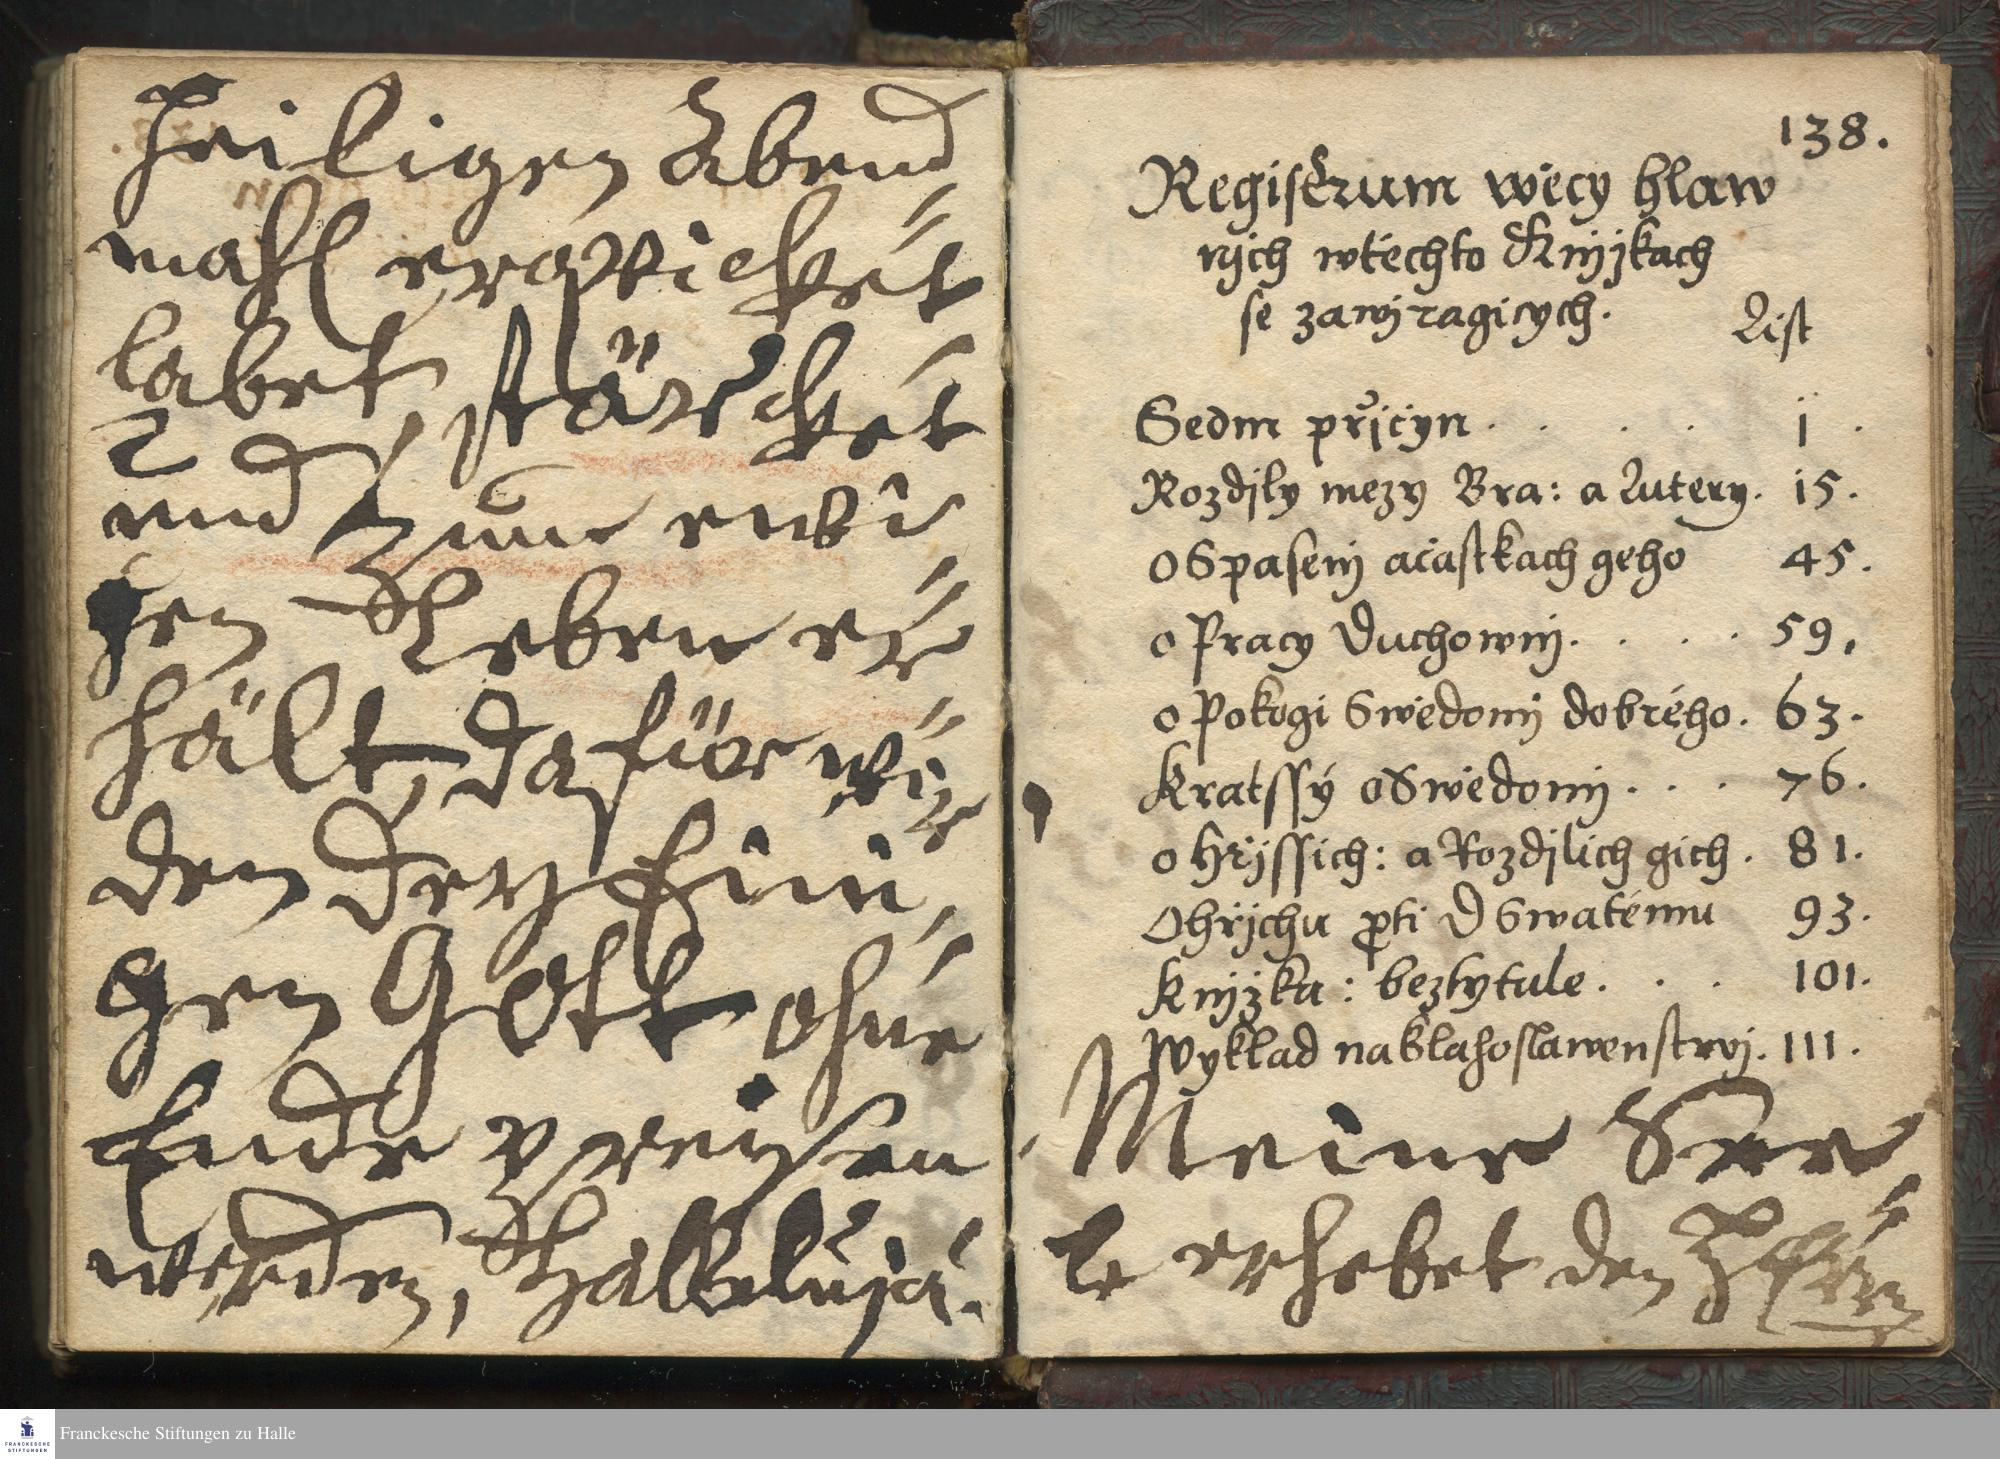 heiligen Abend
mahl erqvicket
labet, stärcket
und zum ewi
gen Leben er=
hält, dafür wer
den Drey Eini
gen Gott ohne
Ende preysen
werden, Halleluja.
138.
Registrum wěcý hlaw
ných wtěchto Knijžkach
se zawjragicych.
List
Sedm přjčyn . . . . 1 .
Rozdjly mezy Bra: a Lutery. 15.
O Spasenj ačastkach geho 45.
o Pracy Duchownj. . . . 59.
o Pokogi Swědomj dobrého. 63.
Kratssý o Swědomj . . . 76.
o Hřjssich: a Rozdjlich gich . 81.
O hřjchu proti D Swatému 93.
Knjžka: beztytule . . . 101.
Wyklad na blahoslawenstwj. 111.
Meine See
le erhebet den Herrn
Franckesche Stiftungen zu Halle
FRANCKESCHE
STIFTUNGEN